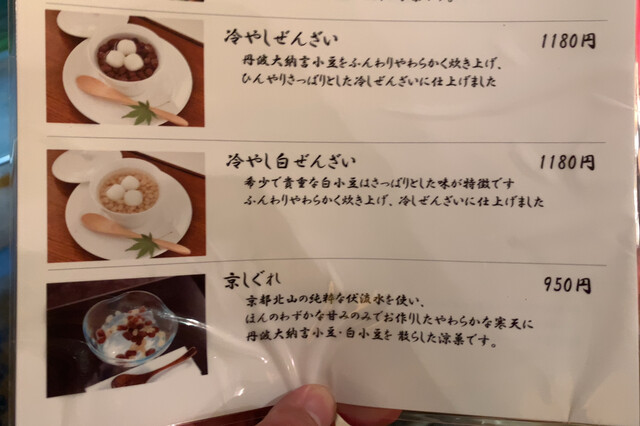 冷やしぜんざい 1180円
丹波大納言小豆をふんわりやわらかく炊き上げ、
ひんやりさっぱりとした冷しぜんざいに仕上げました
冷やし白ぜんざい 1180円
希少で貴重な白小豆はさっぱりとした味が特徴です
ふんわりやわらかく炊き上げ、冷しぜんざいに仕上げました
京しぐれ 950円
京都北山の純粋な伏流水を使い、
ほんのわずかな甘みのみでお作りしたやわらかな寒天に
丹波大納言小豆・白小豆を 散らした涼菓です。